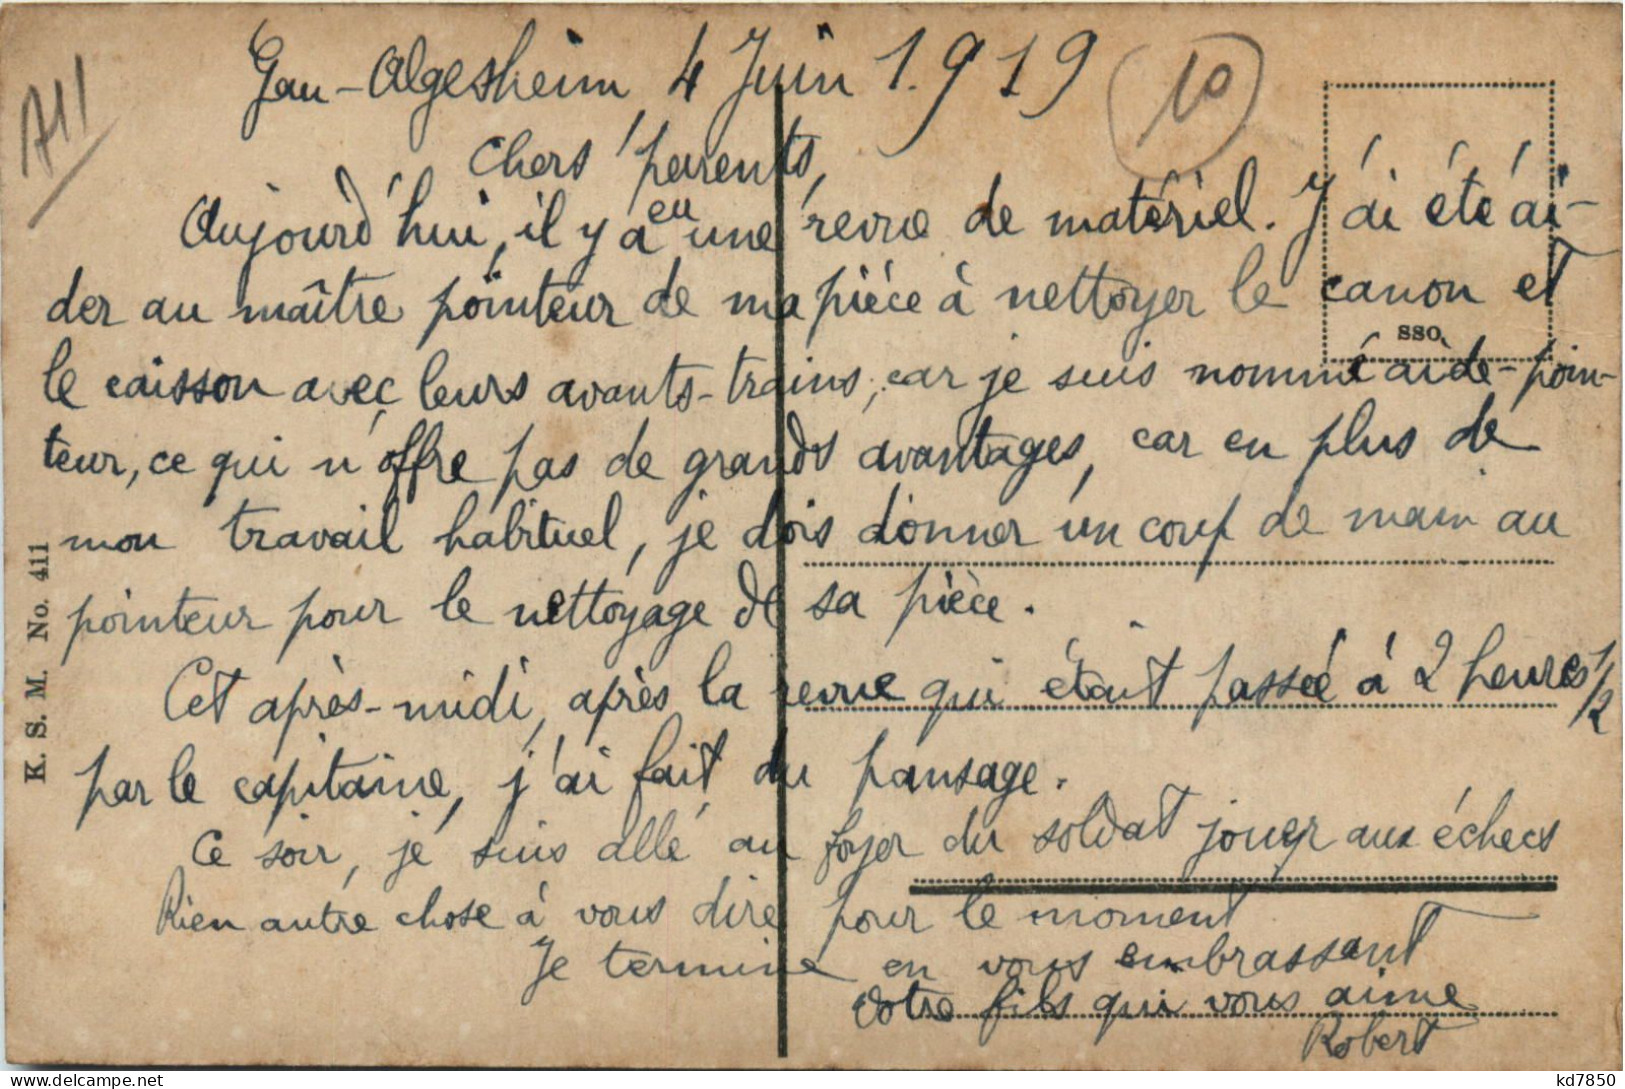 Gau-Algesheim, 4 Juin 1.919
10
A11
Chers parents,
Aujourd'hui, il y a eu une revue de matériel. J'ai été ai-
der au maître pointeur de ma pièce à nettoyer le canon et
sso.
le caisson avec leurs avants-trains, car je suis nommé aide-poin-
teur, ce qui n'offre pas de grands avantages, car en plus de
mon travail habituel, je dois donner un coup de main au
pointeur pour le nettoyage de sa pièce.
Cet après-midi, après la revue qui était passée à 2 heures 1/2
par le capitaine, j'ai fait du pansage.
Ce soir, je suis allé au foyer du soldat jouer aux échecs
Rien autre chose à vous dire pour le moment
Je termine en vous embrassant
Votre fils qui vous aime
Robert
K. S. M. No. 411
kd7850